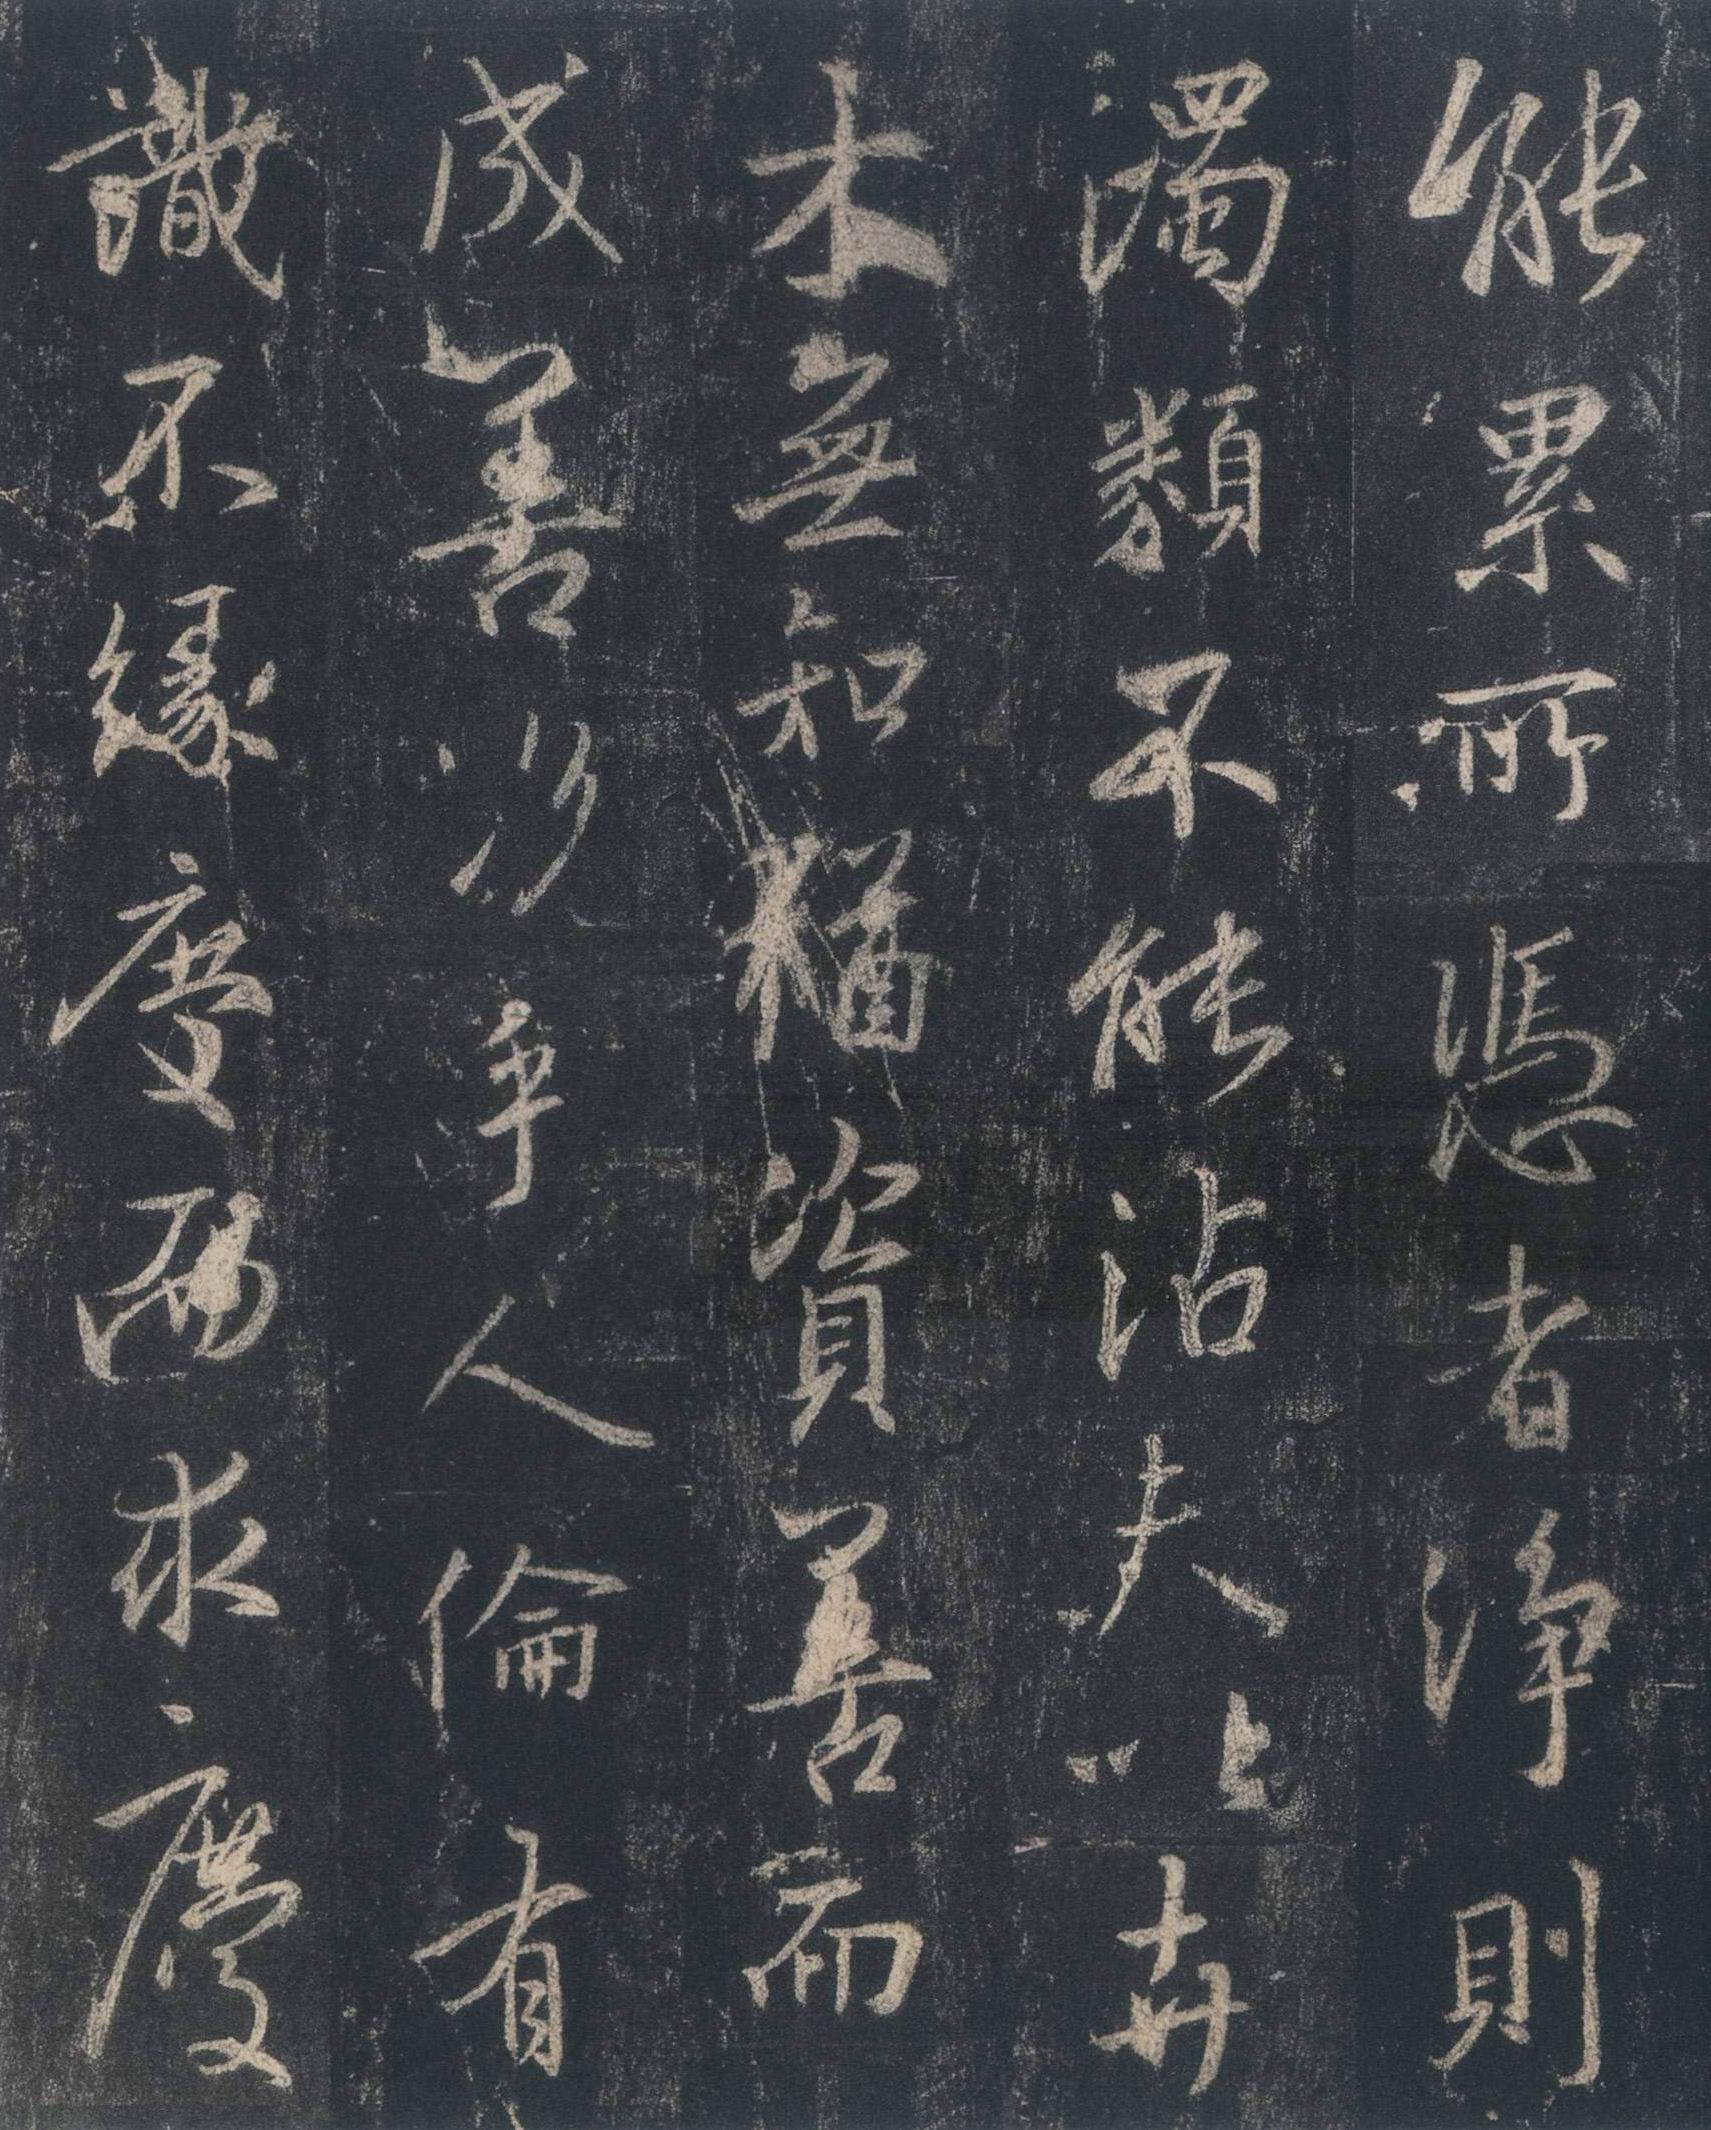 能累所憑者浄則
濁類不能沾夫以卉
木無知猶資善而
成善况乎人倫有
識不緣慶而求慶